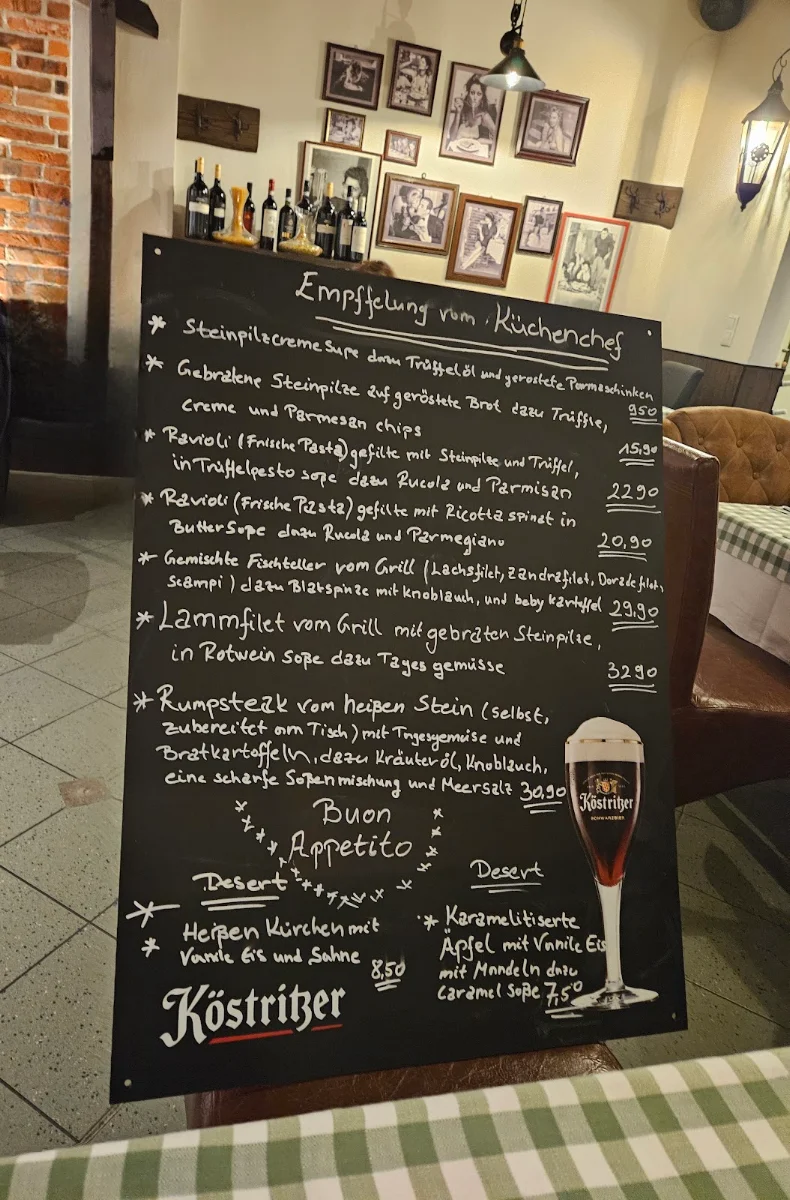 Empffelung vom Küchenchef
* Steinpilzcreme Supe dazu Trüffelöl und geröstete Parmaschinken
950
* Gebratene Steinpilze auf geröstete Brot dazu Trüffle,
creme und Parmesan chips
15,90
* Ravioli (Frische Pasta) gefilte mit Steinpilze und Trüffel,
in Trüffelpesto soße dazu Rucola und Parmisan 2290
* Ravioli (Frische Pasta) gefilte mit Ricotta spinat in
Butter Soße dazu Rucola und Parmegiano 20,90
* Gemischte Fischteller vom Grill (Lachsfilet, Zandrafilet, Dorade filet,
Scampi) dazu Blatspinze mit Knoblauch, und baby Kartoffel 29,90
* Lammfilet vom Grill mit gebraten Steinpilze,
in Rotwein Soße dazu Tages gemüsse 3290
* Rumpsteak vom heißen Stein (selbst,
zubereitet am Tisch) mit Tagesgemüse und
Bratkartoffeln, dazu Kräuteröl, Knoblauch,
eine scharfe Soßenmischung und Meersalz 30,90
Buon
Appetito
Desert
* Heißen Kürchen mit
* Vanile Eis und Sahne
8,50
Desert
* Karamelitiserte
Äpfel mit Vanile Eis
mit Mandeln dazu
Caramel Soße 7,50
Köstritzer
Köstritzer
SCHWARZBIER